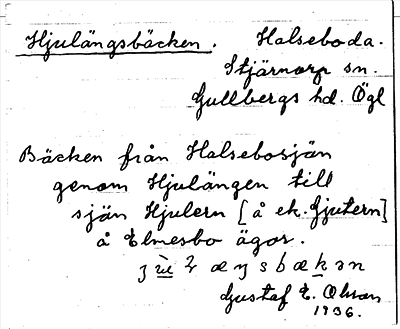 Hjulängsbäcken. Halseboda.
Stjärnorp sn.
Gullbergs hd. Ögl
Bäcken från Halsebosjän
genom Hjulängen till
sjän Hjulern [å ek. Gjutern]
å Elmesbo ägor.
Gustaf E. Olsson
1936.